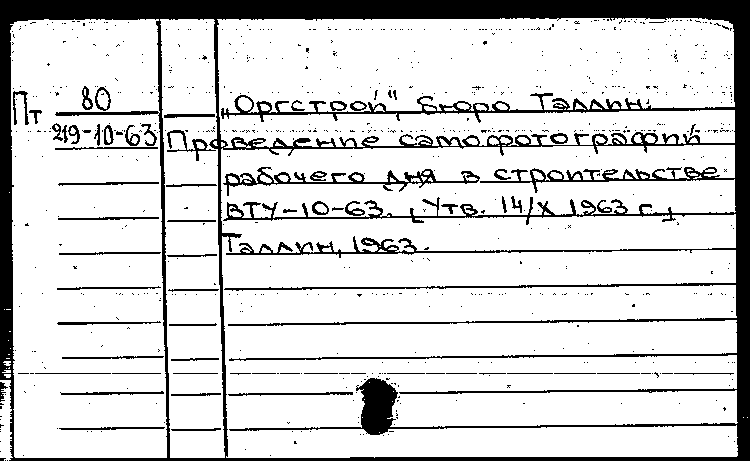 Пт 80
219-10-63
„Оргстрой", Бюро Таллин.
Проведение самофотографий
рабочего дня в строительстве
ВТУ-10-63. [Утв. 14/X 1963 г.].
Таллин, 1963.